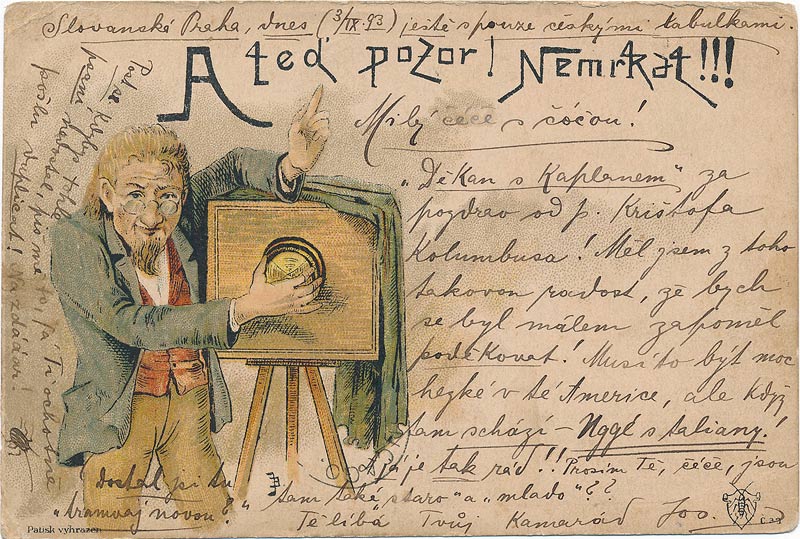 Slovanské Praha, dnes (3/IX.93) ještě s pouze českými tabulkami.
A teď pozor! Nemrkat!!!
Milý čéče s čóčou!
„Děkan s Kaplanem" za
pozdrav od p. Krištofa
Kolumbusa! Měl jsem z toho
takovou radost, že bych
se byl málem zapoměl
poděkovat! Musí to být moc
hezké v té Americe, ale když
tam schází – Nggé s taliany!
já je tak rád!! Prosím Tě, čéče, jsou
tam také „staro" a „mlado"??
Tě líbá Tvůj Kamarád Joo.
Když toho
píš mě to, já Ti ochotně
pošlu duplicat! Nazdááár!
dostal jsi tu
„tramvaj novou?"
Patisk vyhrazen